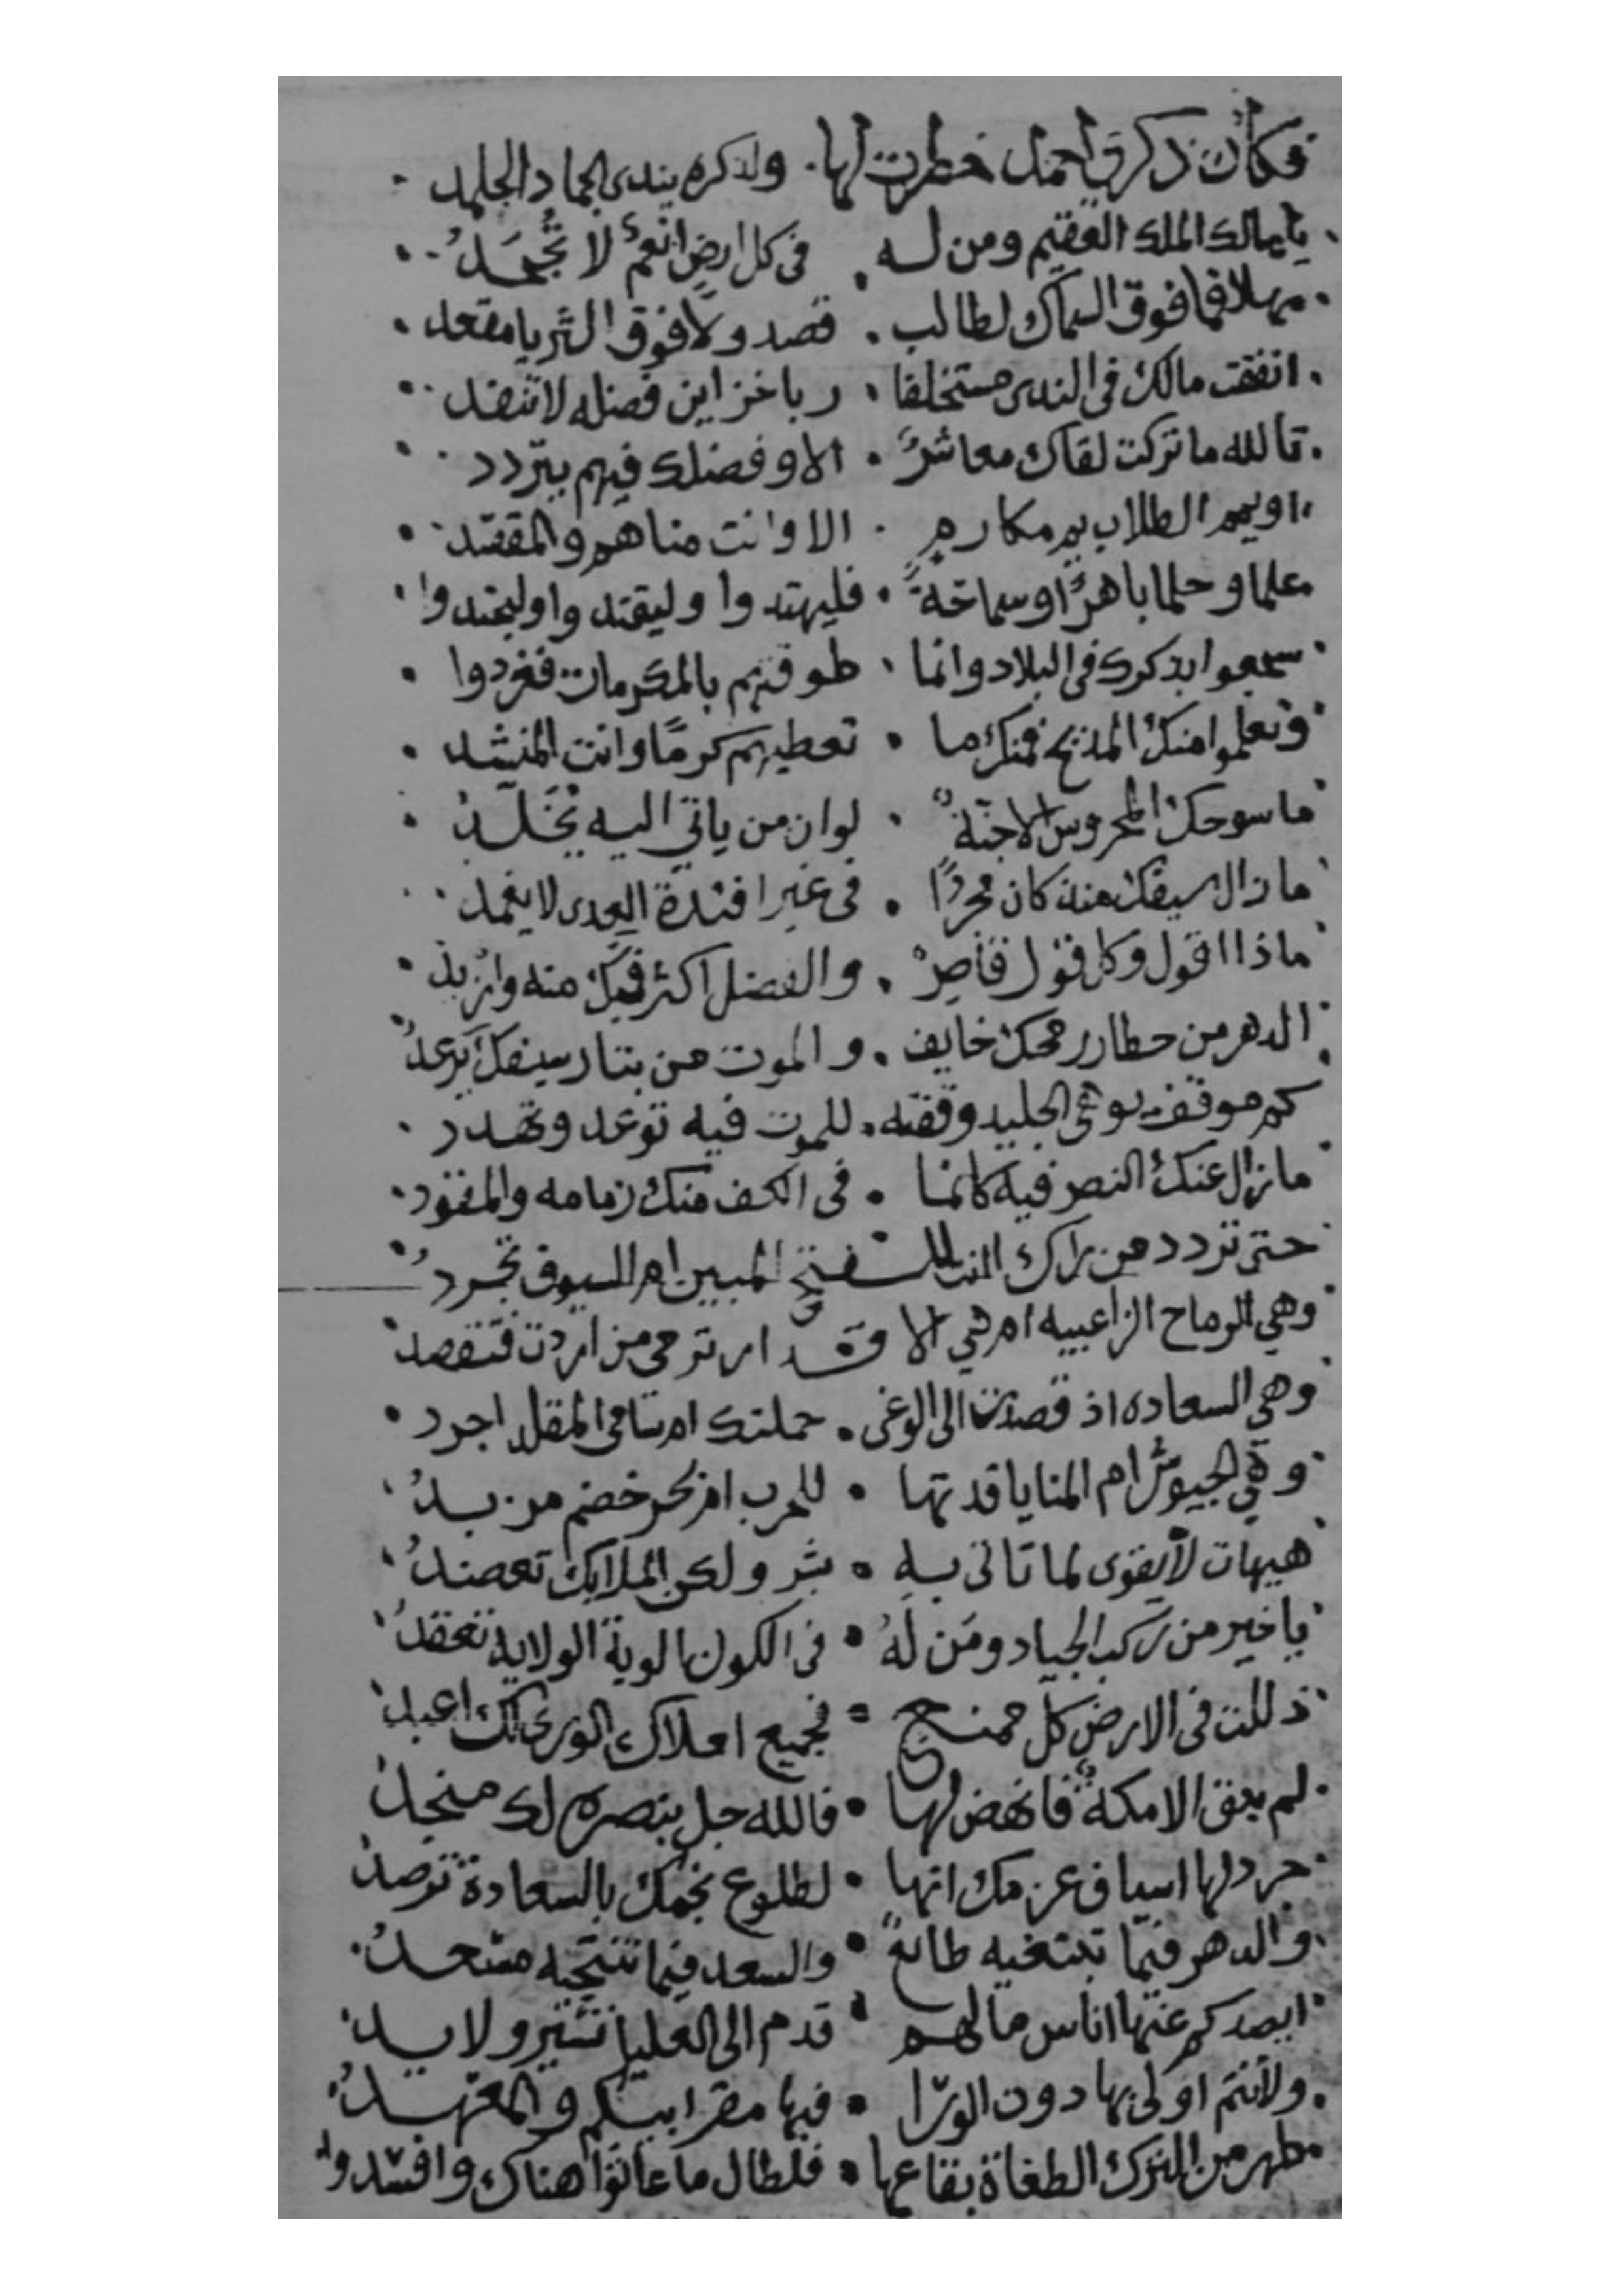 فكأن ذكرى احمد خطرت لها. ولذكره يندى الجماد الجلمد
يا مالك الملك العقيم ومن له . في كل ارضٍ انعمٌ لا تُجحَدُ
مهلا فما فوق السماك لطالب . قصد ولا فوق الثريا مقعد
انفقت مالك في الندى مستخلفا . ربا خزاين فضله لا تنفد
تالله ما تركت لقاك معاشرٌ . الا وفضلك فيهم يتردد
او يمم الطلاب يم مكارمٍ . الا وانت مناهم والمقصد
علما وحلما باهرًا وسماحةً . فليهتدوا وليقتدوا وليجتدوا
سجعوا بذكرك في البلاد وانما . طوقتهم بالمكرمات فغردوا
وتعلموا منك المديح فمنك ما . تعطيهم كرمًا وانت المنشد
ما سوحك المحروس الا جنةٌ . لو ان من ياتي اليه يُخَلَّدُ
ما زال سيفك منذ كان مجردًا . في غير افئدة العدى لا يغمد
ماذا اقول وكل قول قاصرٌ . والفضل اكثر فيك منه وازيد
الدهر من خطار رمحك خايف . والموت من بتار سيفك يرعدُ
كم موقف يوهي الجليد وقفته . للموت فيه توعد وتهدد
ما زال عنك النصر فيه كانما . في الكف منك زمامه والمقود
حتى تردد من راك الفتح المبين ام السيوف تجردُ
وهي الرماح الزاعبيه ام هي الا قدار ترمي من اردت فتقصد
وهي السعاده اذ قصدت الى الوغى . حملتك ام سامي المقلد اجرد
وهي الجيوش ام المنايا قدتها . للحرب ام بحر خضم مزبدُ
هيهات لا يقوى لما تاتي بهِ . بشر ولكن الملايك تعضدُ
يا خير من ركب الجياد ومَن لهُ . في الكون الوية الولاية تعقدُ
ذللت في الارض كل ممنع . فجميع املاك الورى لك اعبد
لم يبق الا مكةٌ فانهض لها . فالله جل بنصره لك منجد
جرد لها اسياف عزمك انها . لطلوع نجمك بالسعادة ترصد
والدهر فيما تبتغيه طائعٌ . والسعد فيما تنتحيه مسعدُ
ايصدكم عنها اناس ما لهم . قدم الى العليا تشير ولا يد
ولأنتم اولى بها دون الورا . فيها مقر ابيكم والمعهدُ
طهر من الترك الطغاة بقاعها . فلطال ما عاثوا هناك وافسدوا